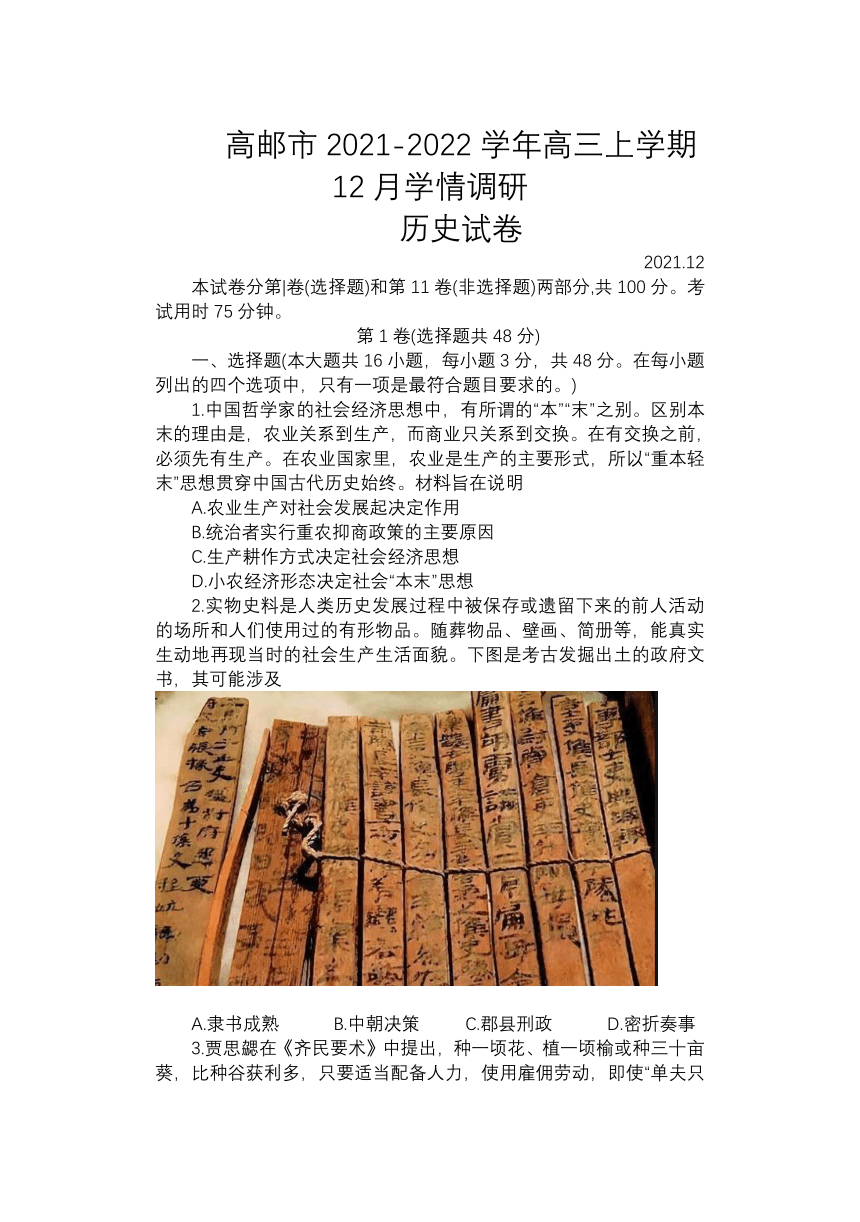 高邮市 2021-2022 学年高三上学期
12 月学情调研
历史试卷
2021.12
本试卷分第|卷(选择题)和第 11 卷(非选择题)两部分,共 100 分。考
试用时 75 分钟。
第 1 卷(选择题共 48 分)
一、选择题(本大题共 16 小题，每小题 3 分，共 48 分。在每小题
列出的四个选项中，只有一项是最符合题目要求的。)
1.中国哲学家的社会经济思想中，有所谓的“本”“末”之别。区别本
末的理由是，农业关系到生产，而商业只关系到交换。在有交换之前，
必须先有生产。在农业国家里，农业是生产的主要形式，所以“重本轻
末”思想贯穿中国古代历史始终。材料旨在说明
A.农业生产对社会发展起决定作用
B.统治者实行重农抑商政策的主要原因
C.生产耕作方式决定社会经济思想
D.小农经济形态决定社会“本末”思想
2.实物史料是人类历史发展过程中被保存或遗留下来的前人活动
的场所和人们使用过的有形物品。随葬物品、壁画、简册等，能真实
生动地再现当时的社会生产生活面貌。下图是考古发掘出土的政府文
书，其可能涉及
A.隶书成熟 B.中朝决策 C.郡县刑政 D.密折奏事
3.贾思勰在《齐民要术》中提出，种一顷花、植一顷榆或种三十亩
葵，比种谷获利多，只要适当配备人力，使用雇佣劳动，即使“单夫只